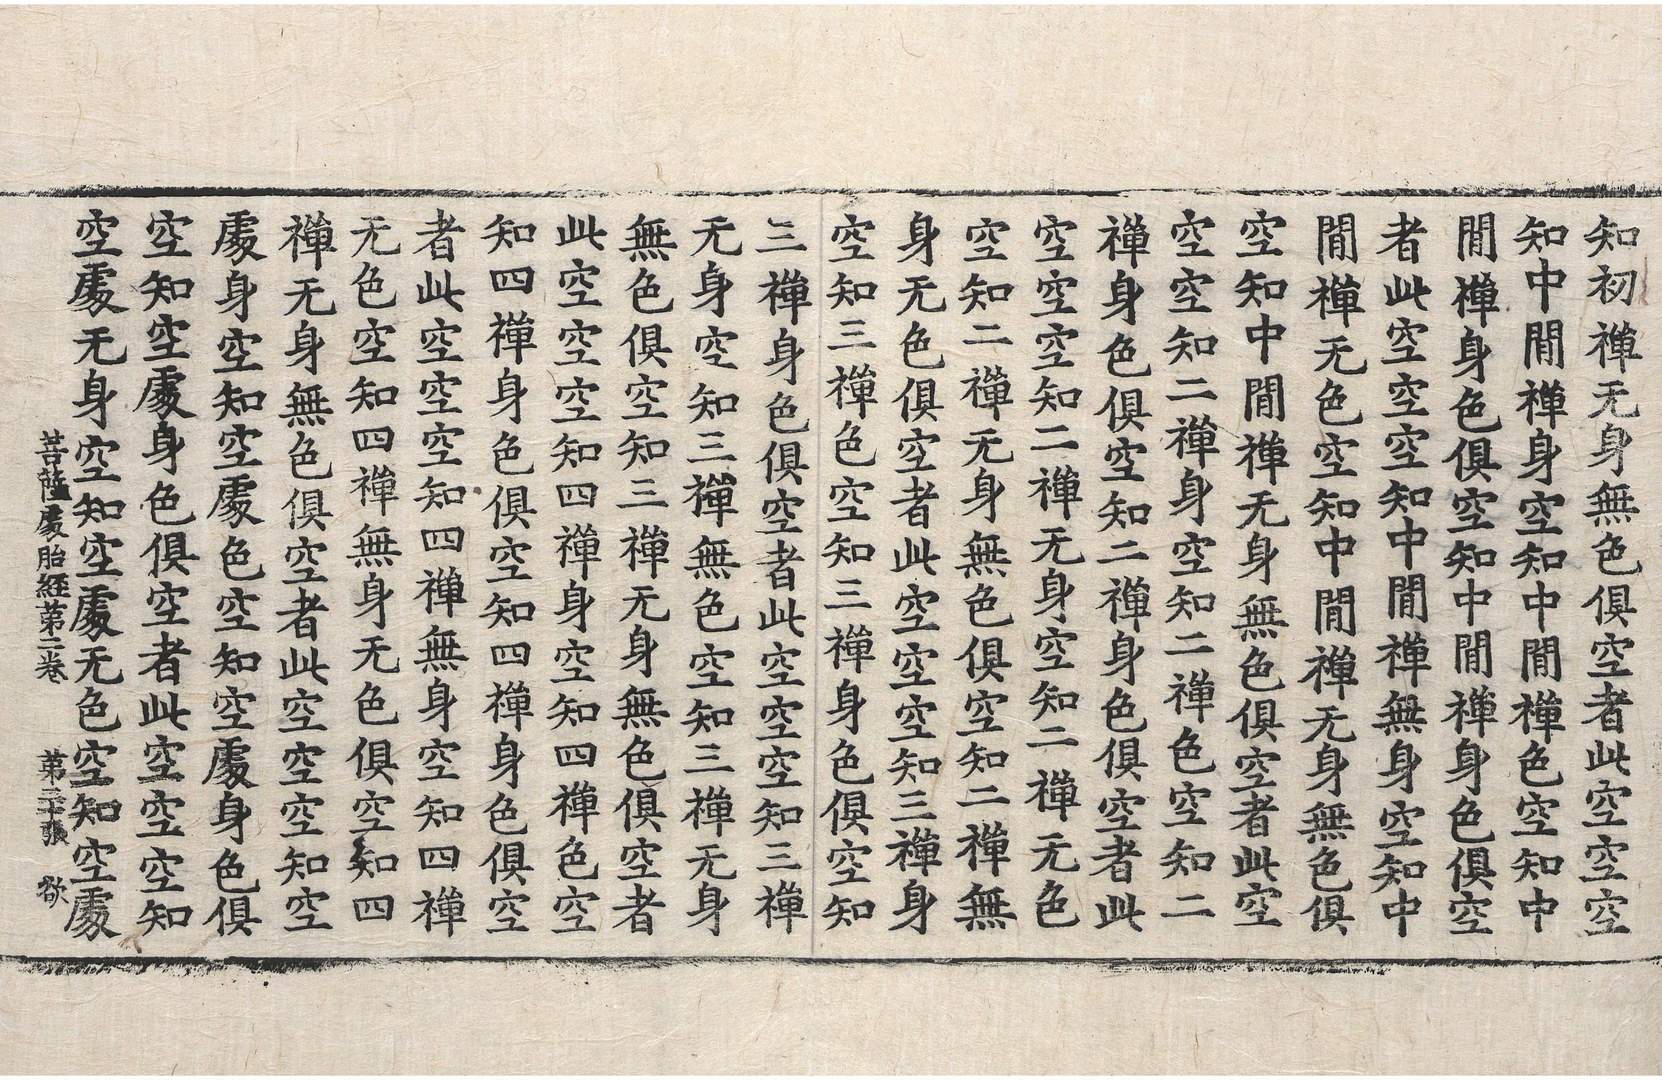 知初禪无身無色俱空者此空空空
知中閒禪身空知中閒禪色空知中
閒禪身色俱空知中閒禪身色俱空
者此空空空知中閒禪無身空知中
閒禪无色空知中閒禪无身無色俱
空知中閒禪无身無色俱空者此空
空空知二禪身空知二禪色空知二
禪身色俱空知二禪身色俱空者此
空空空知二禪无身空知二禪无色
空知二禪无身無色俱空知二禪無
身无色俱空者此空空空知三禪身
空知三禪色空知三禪身色俱空知
三禪身色俱空者此空空空知三禪
无身空知三禪無色空知三禪无身
無色俱空知三禪无身無色俱空者
此空空空知四禪身空知四禪色空
知四禪身色俱空知四禪身色俱空
者此空空空知四禪無身空知四禪
无色空知四禪無身无色俱空知四
禪无身無色俱空者此空空空知空
處身空知空處色空知空處身色俱
空知空處身色俱空者此空空空知
空處无身空知空處无色空知空處
菩薩處胎經苐二卷 苐三十張 欲